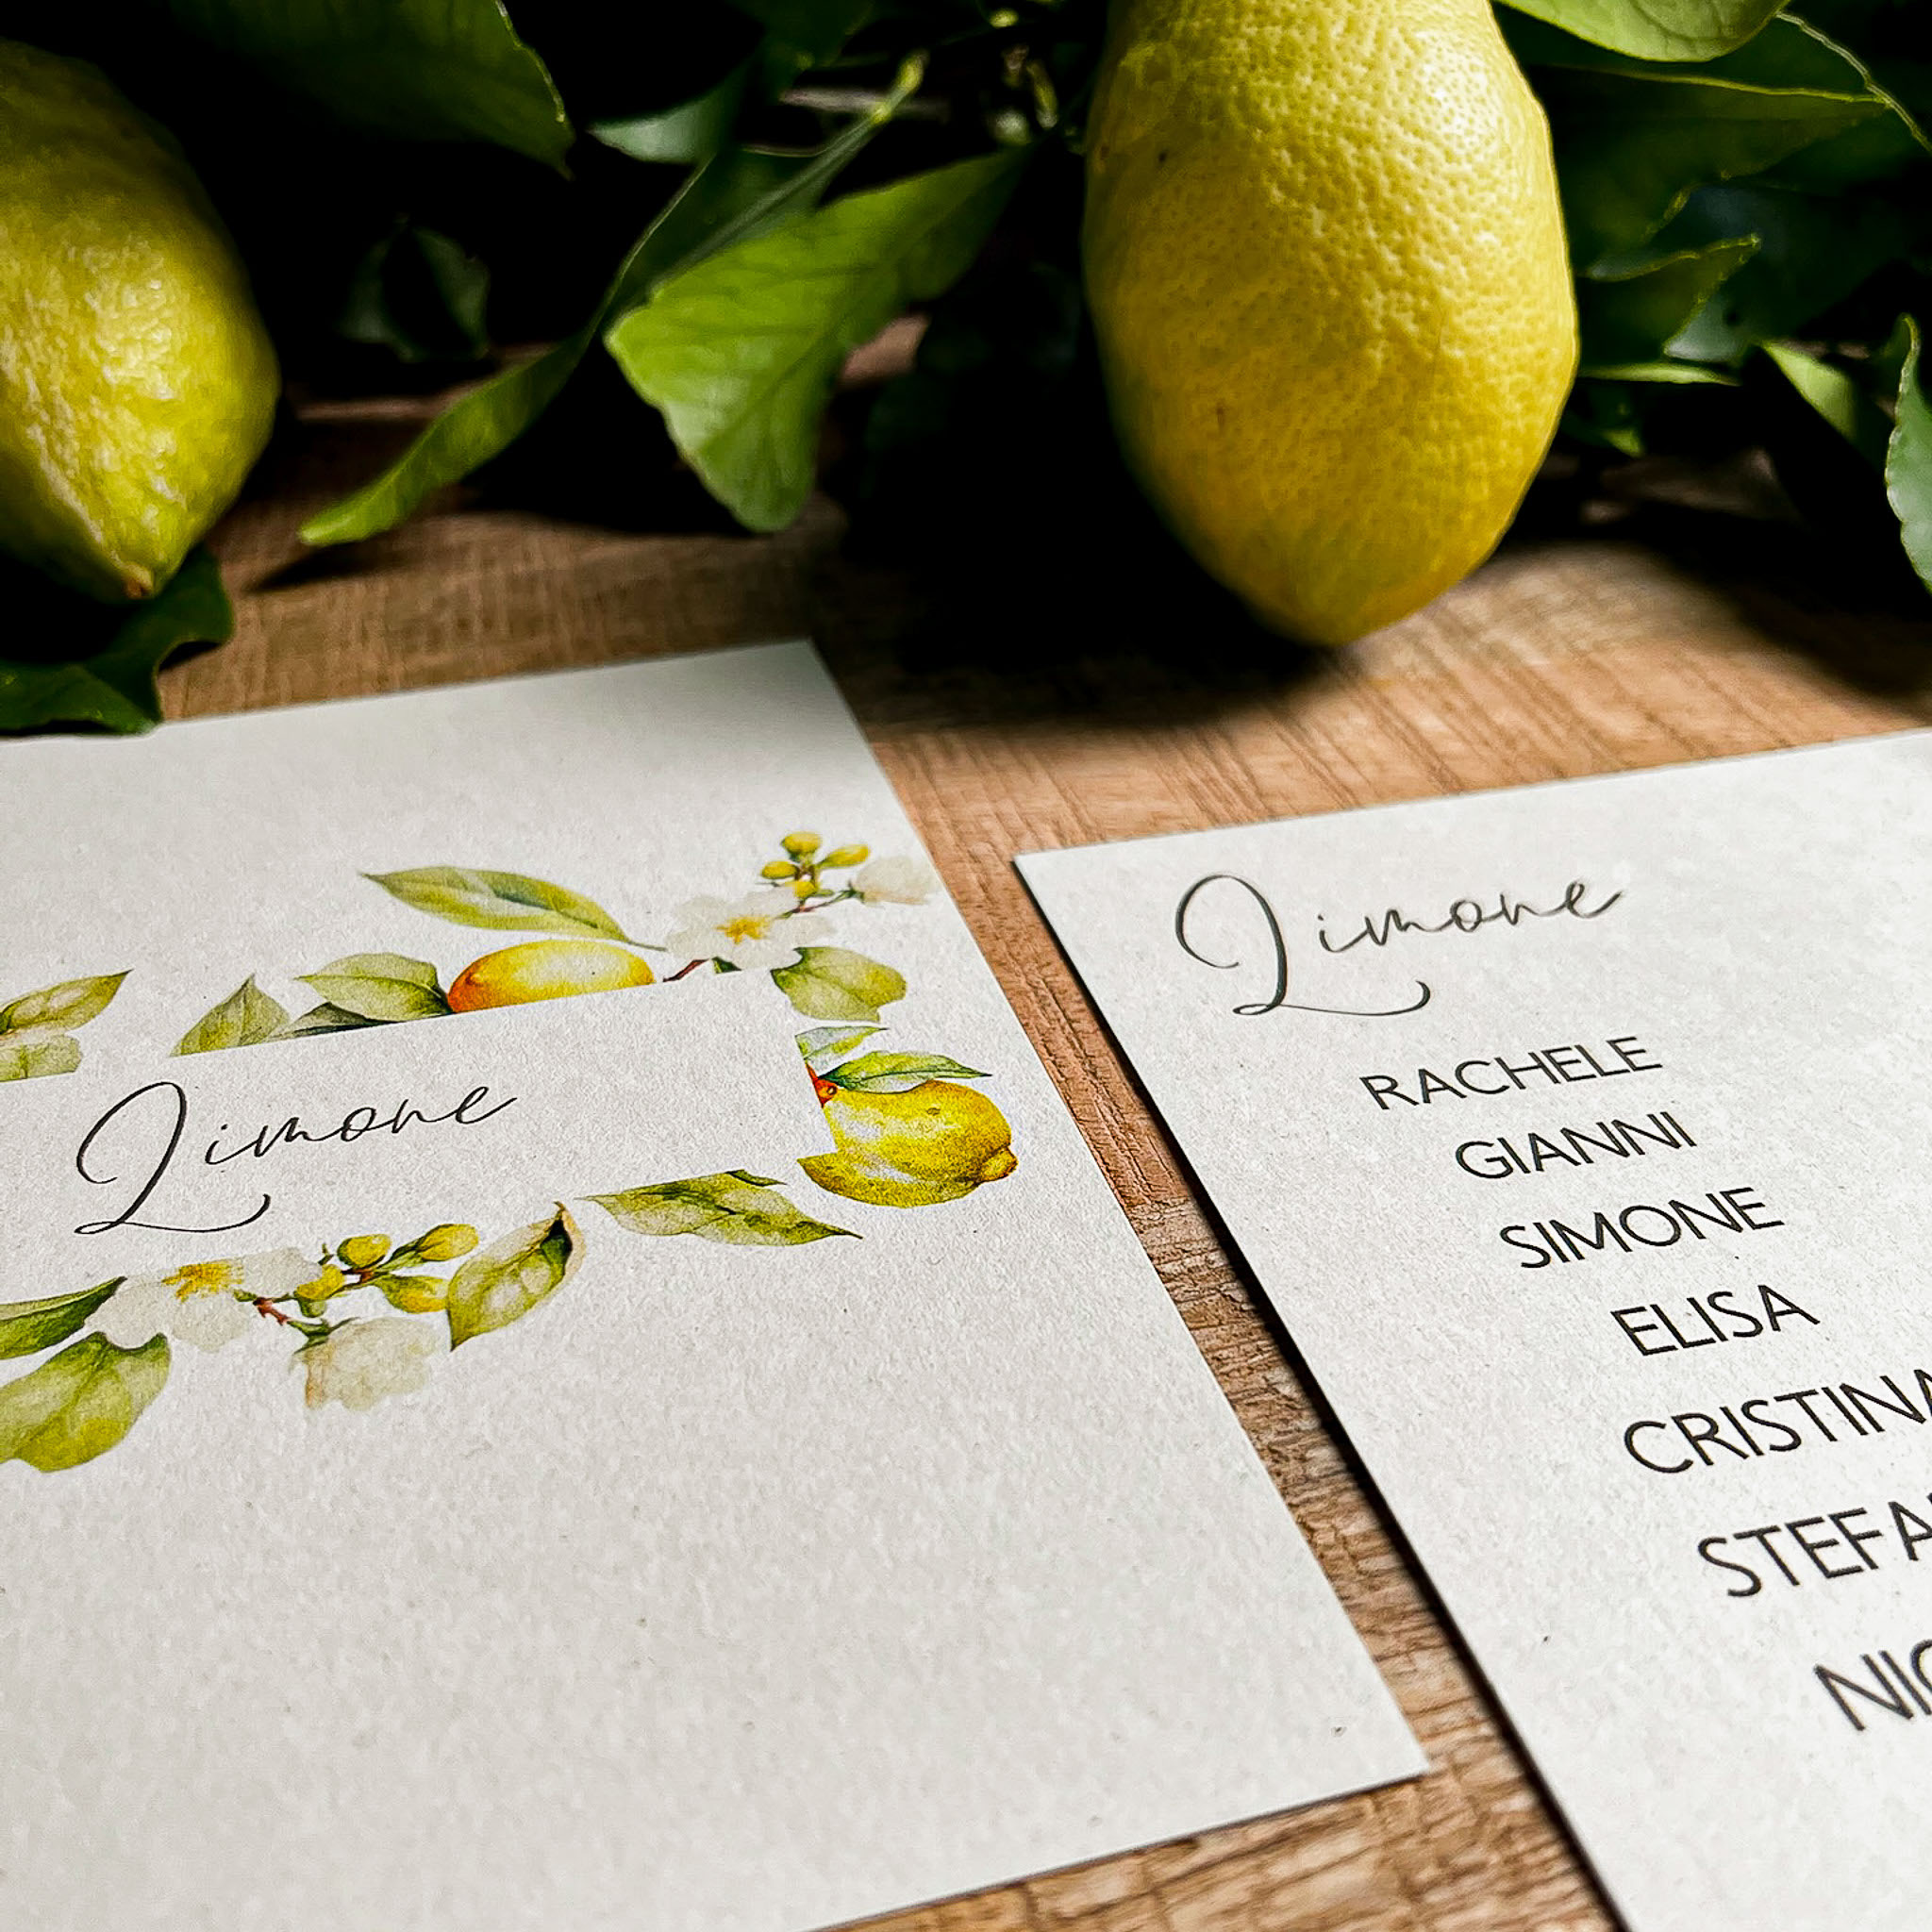 Limone
Limone
RACHELE
GIANNI
SIMONE
ELISA
CRISTINA